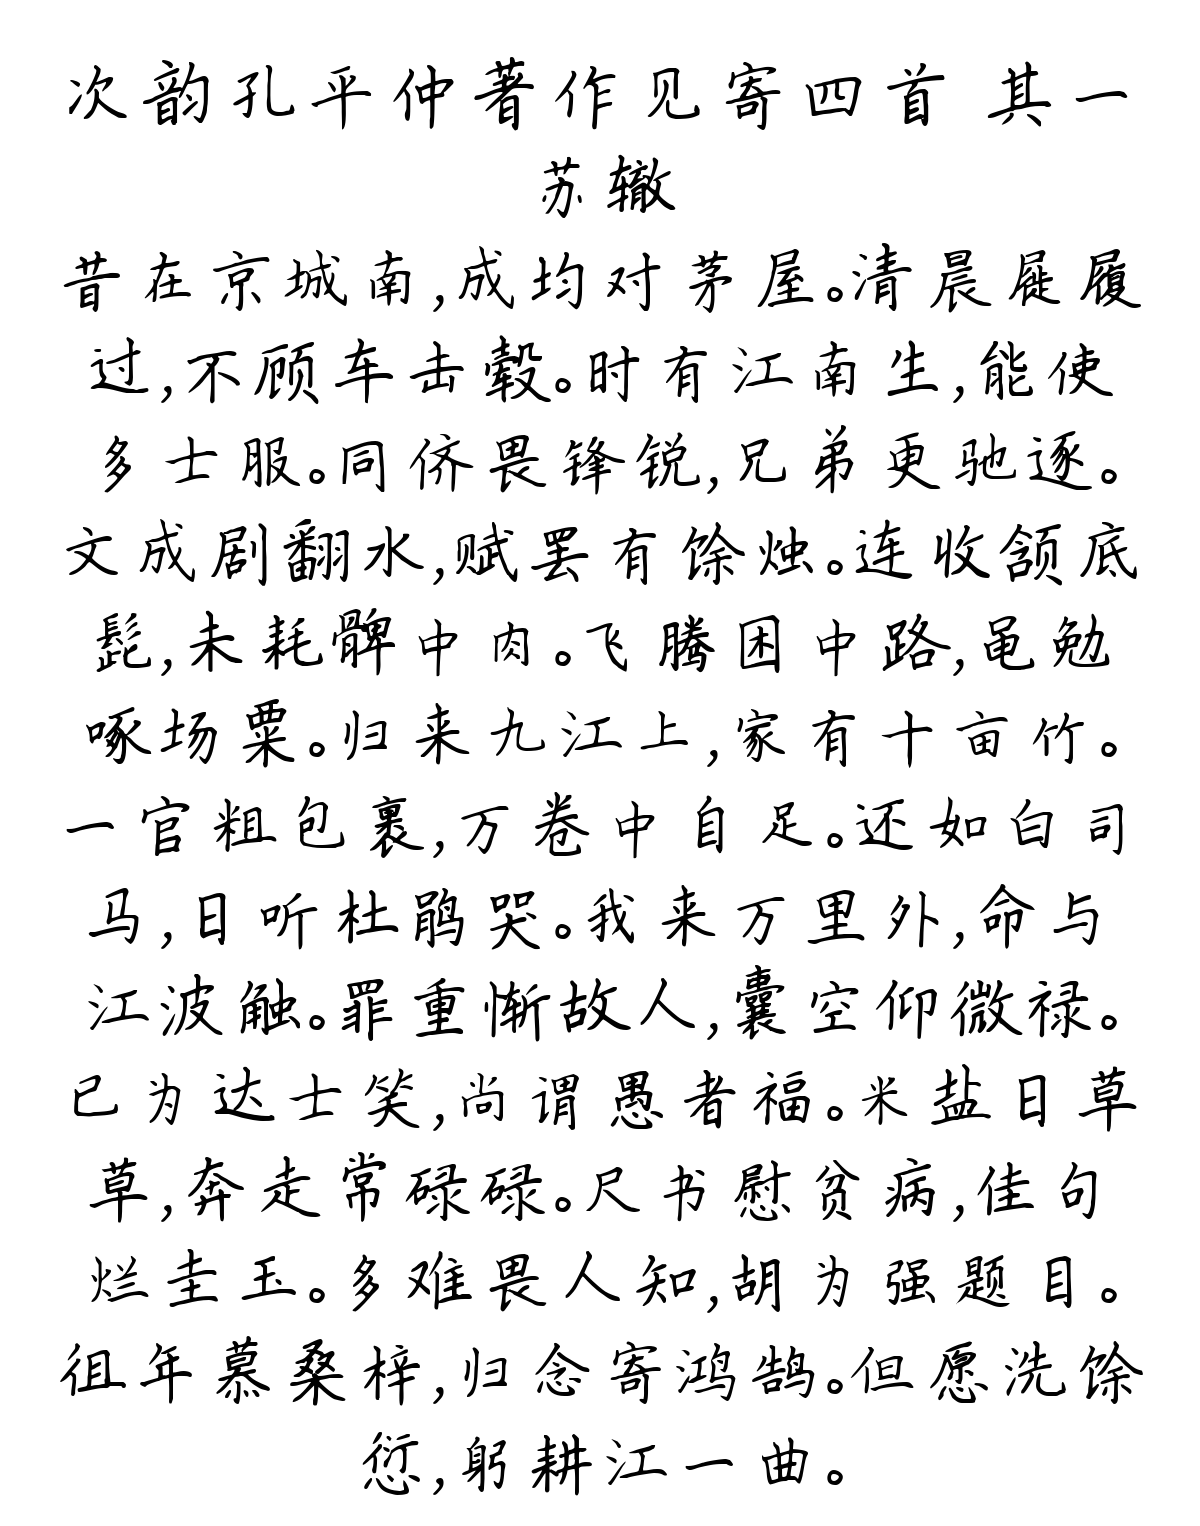 次韵孔平仲著作见寄四首 其一
苏辙
昔在京城南,成均对茅屋。清晨屣履
过,不顾车击毂。时有江南生,能使
多士服。同侪畏锋锐,兄弟更驰逐。
文成剧翻水,赋罢有馀烛。连收颔底
髭,未耗髀中肉。飞腾困中路,黾勉
啄场粟。归来九江上,家有十亩竹。
一官粗包裹,万卷中自足。还如白司
马,日听杜鹃哭。我来万里外,命与
江波触。罪重惭故人,囊空仰微禄。
已为达士笑,尚谓愚者福。米盐日草
草,奔走常碌碌。尺书慰贫病,佳句
烂圭玉。多难畏人知,胡为强题目。
徂年慕桑梓,归念寄鸿鹄。但愿洗馀
愆,躬耕江一曲。